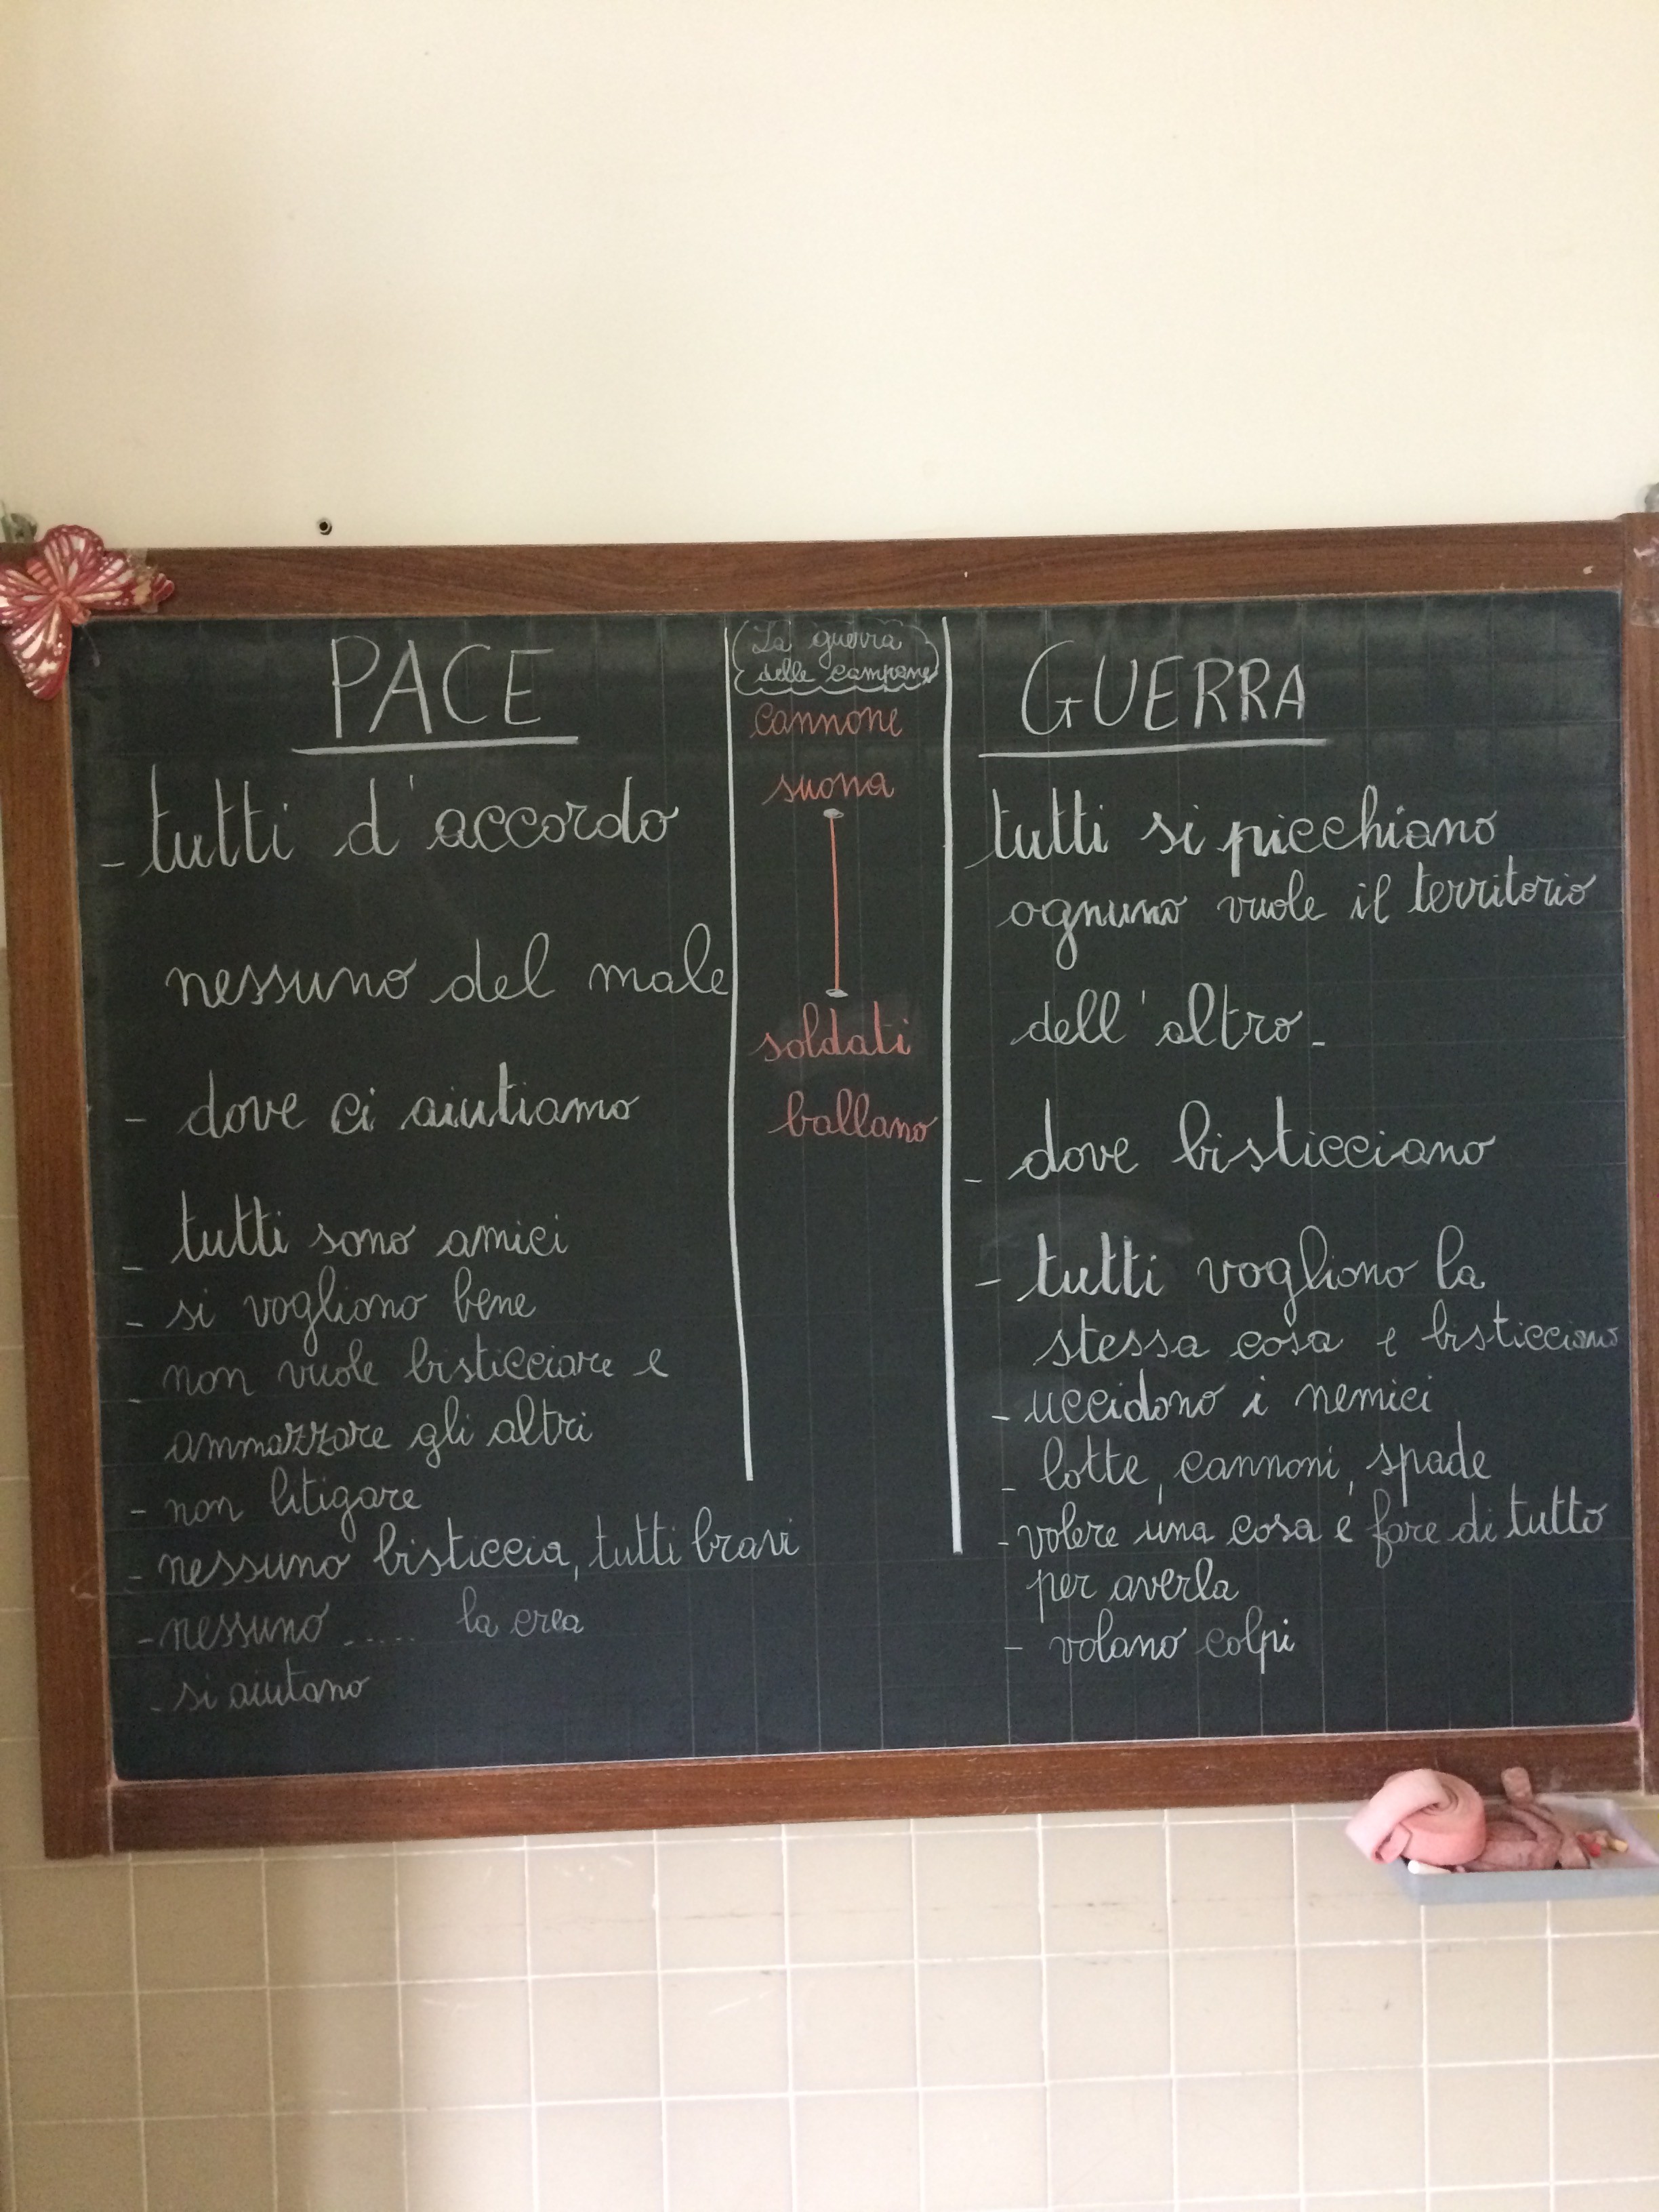 PACE
- tutti d'accordo
nessuno del male
- dove ci aiutiamo
- tutti sono amici
- si vogliono bene
- non vuole bisticciare e
ammazzare gli altri
- non litigare
- nessuno bisticcia, tutti bravi
- nessuno ..... la crea
- si aiutano
La guerra
delle campane
cannone
suona
soldati
ballano
GUERRA
tutti si picchiano
ognuno vuole il territorio
dell'altro -
- dove bisticciano
- tutti vogliono la
stessa cosa e bisticciano
- uccidono i nemici
- lotte, cannoni, spade
- volere una cosa e fare di tutto
per averla
- volano colpi